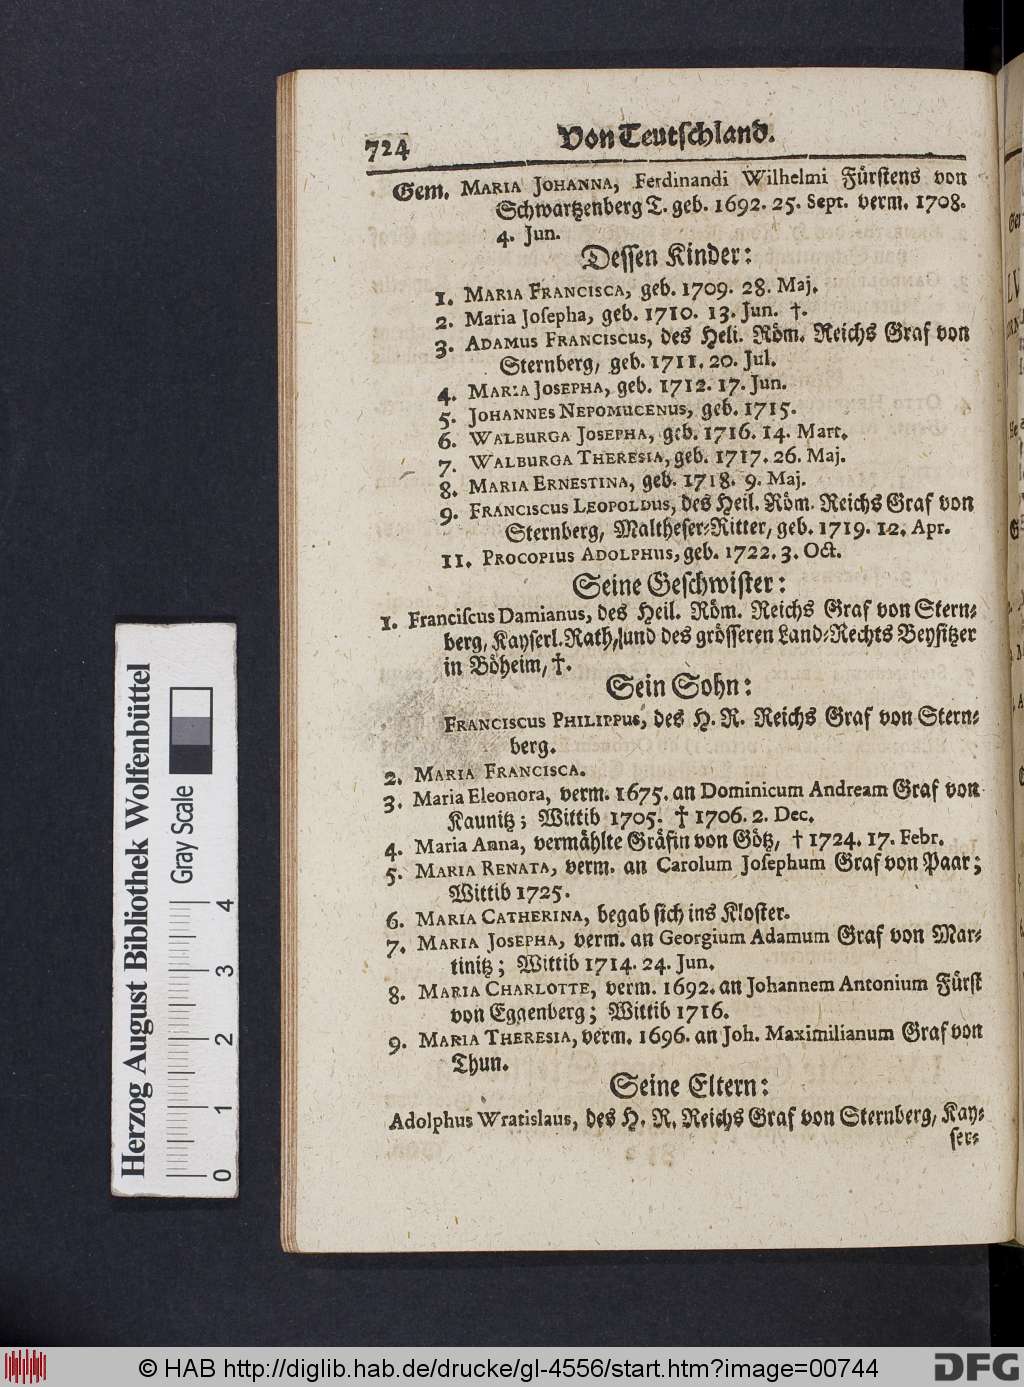 724 Von Teutschland.
Gem. MARIA JOHANNA, Ferdinandi Wilhelmi Fürstens von
Schwartzenberg T. geb. 1692. 25. Sept. verm. 1708.
4. Jun.
Dessen Kinder:
1. MARIA FRANCISCA, geb. 1709. 28. Maj.
2. Maria Josepha, geb. 1710. 13. Jun. †.
3. ADAMUS FRANCISCUS, des Heil. Röm. Reichs Graf von
Sternberg, geb. 1711. 20. Jul.
4. MARIA JOSEPHA, geb. 1712. 17. Jun.
5. JOHANNES NEPOMUCENUS, geb. 1715.
6. WALBURGA JOSEPHA, geb. 1716. 14. Mart.
7. WALBURGA THERESIA, geb. 1717. 26. Maj.
8. MARIA ERNESTINA, geb. 1718. 9. Maj.
9. FRANCISCUS LEOPOLDUS, des Heil. Röm. Reichs Graf von
Sternberg, Maltheser-Ritter, geb. 1719. 12. Apr.
11. PROCOPIUS ADOLPHUS, geb. 1722. 3. Oct.
Seine Geschwister:
1. Franciscus Damianus, des Heil. Röm. Reichs Graf von Stern-
berg, Kayserl. Rath, und des grösseren Land-Rechts Beysitzer
in Böheim, †.
Sein Sohn:
FRANCISCUS PHILIPPUS, des H. R. Reichs Graf von Stern-
berg.
2. MARIA FRANCISCA.
3. Maria Eleonora, verm. 1675. an Dominicum Andream Graf von
Kaunitz; Wittib 1705. † 1706. 2. Dec.
4. Maria Anna, vermählte Gräfin von Götz, † 1724. 17. Febr.
5. MARIA RENATA, verm. an Carolum Josephum Graf von Paar;
Wittib 1725.
6. MARIA CATHERINA, begab sich ins Kloster.
7. MARIA JOSEPHA, verm. an Georgium Adamum Graf von Mar-
tinitz; Wittib 1714. 24. Jun.
8. MARIA CHARLOTTE, verm. 1692. an Johannem Antonium Fürst
von Eggenberg; Wittib 1716.
9. MARIA THERESIA, verm. 1696. an Joh. Maximilianum Graf von
Thun.
Seine Eltern:
Adolphus Wratislaus, des H. R. Reichs Graf von Sternberg, Kay-
ser-
Herzog August Bibliothek Wolfenbüttel
Gray Scale
0 1 2 3 4
© HAB http://diglib.hab.de/drucke/gl-4556/start.htm?image=00744
DFG